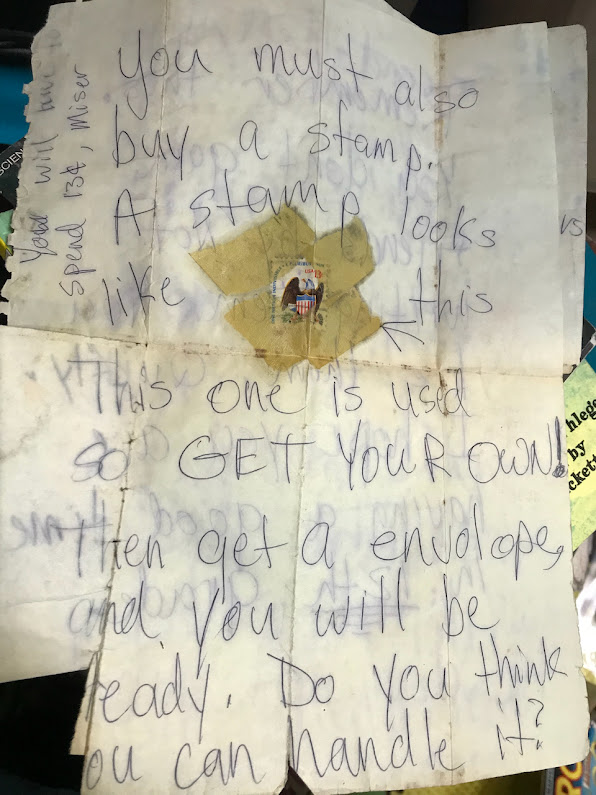 You will have
spend 13¢, Miser
you must also
buy a stamp.
A stamp looks
like this
This one is used
so GET YOUR OWN!
Then get a envolope,
and you will be
ready. Do you think
ou can handle it?
SCIEN
hlegg
by
ckett